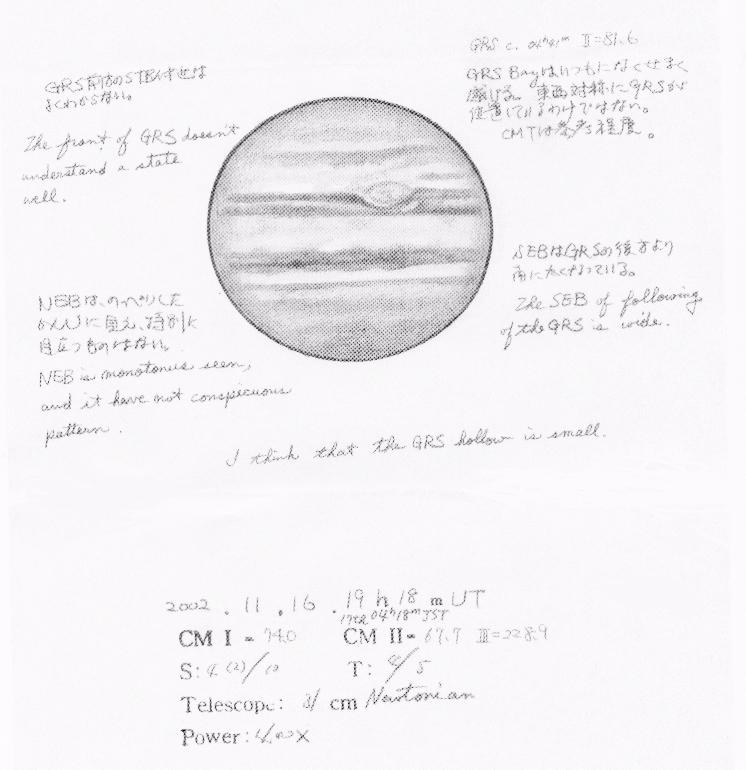 GRS c. 04h41m II=81.6
GRS前方のSTBの状態は
よくわからない。
GRS Bayはいつもになくせまく
感じる。東西対称にGRSが
位置しているわけではない。
CMTは参考程度。
The front of GRS doesn't
understand a state
well.
SEBはGRSの後方より
南に太くなっている。
The SEB of following
of the GRS is wide.
NEBは、のっぺりした
かんじに見え、特別に
目立つものはない。
NEB is monotonus seen,
and it have not conspicuous
pattern.
I think that the GRS hollow is small.
2002.11.16.19h18mUT
17th 04h18m JST
CM I = 74.0 CM II= 67.7 III=228.9
S: 4(2)/10 T: 4/5
Telescope: 31 cm Newtonian
Power: 400X